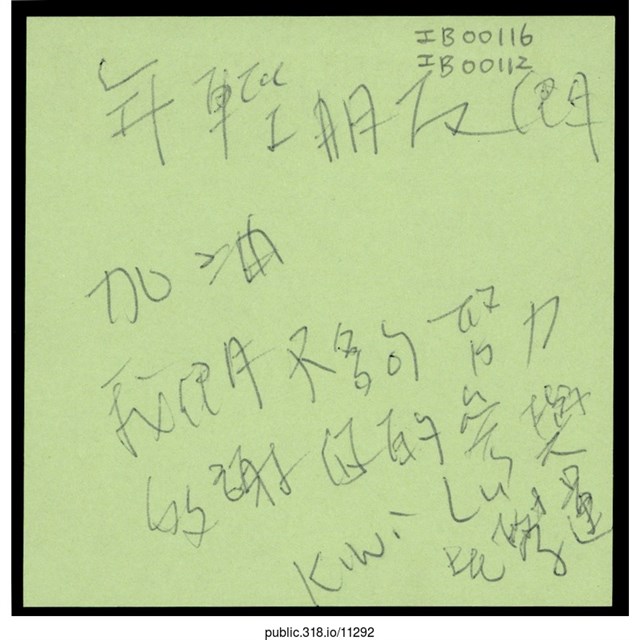 IB00116
IB00112
年輕朋友們
加油
我們不夠努力
謝 你們的
Kiwi Lu
public.318.io/11292